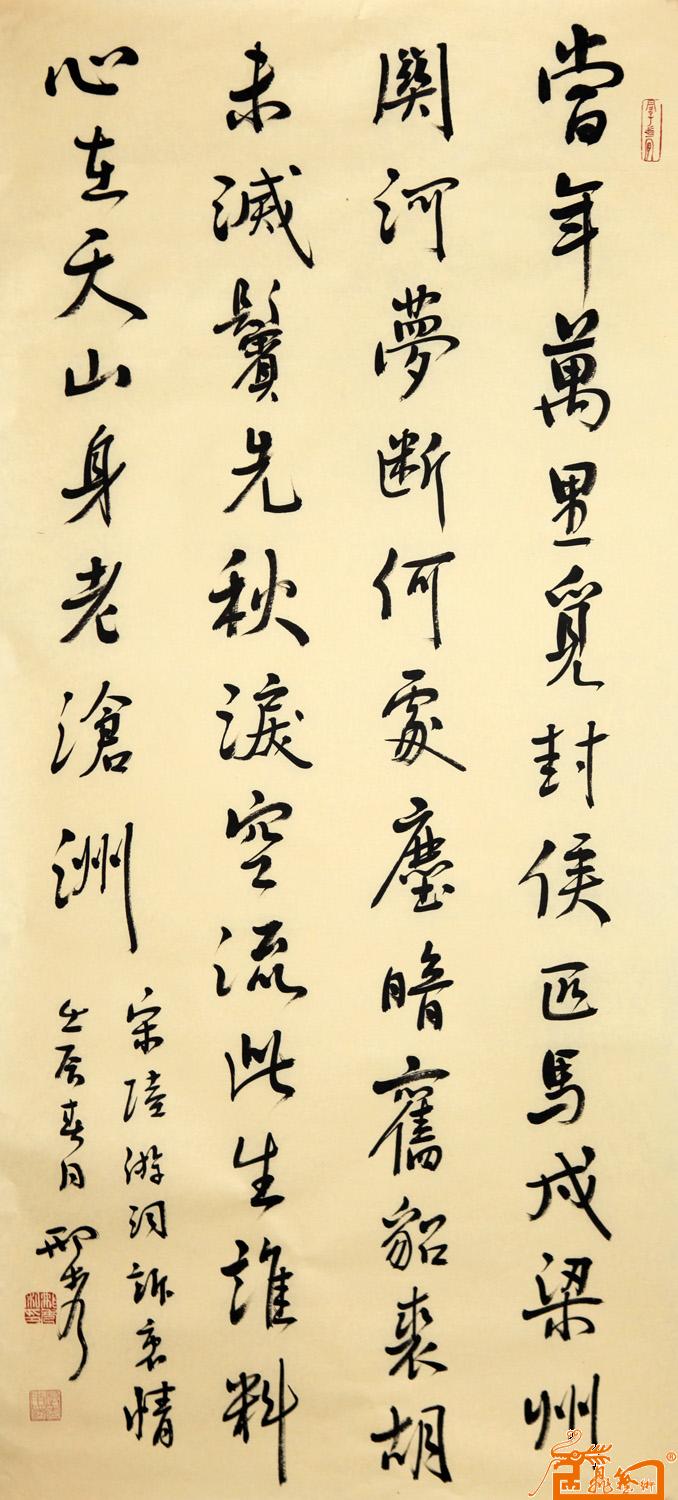 當年萬里覓封侯匹馬戍梁州
關河夢断何處塵暗舊貂裘胡
未滅鬢先秋淚空流此生誰料
心在天山身老滄洲
宋陸游词訴衷情
壬辰春月